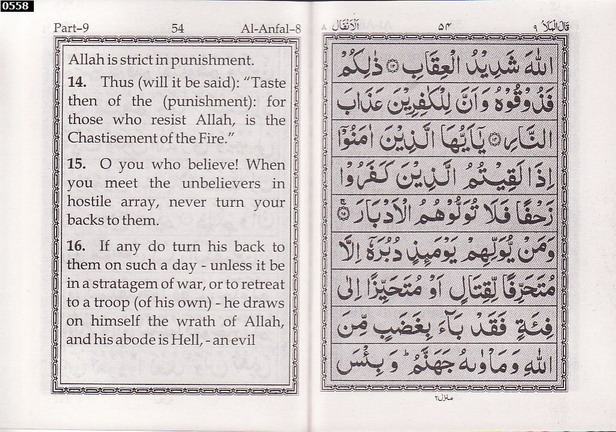 0558
Part–9 54 Al-Anfal–8
Allah is strict in punishment.
14. Thus (will it be said): “Taste
then of the (punishment): for
those who resist Allah, is the
Chastisement of the Fire.”
15. O you who believe! When
you meet the unbelievers in
hostile array, never turn your
backs to them.
16. If any do turn his back to
them on such a day - unless it be
in a stratagem of war, or to retreat
to a troop (of his own) - he draws
on himself the wrath of Allah,
and his abode is Hell, - an evil
اَلْاَنْفَال ٨ ٥٤ قَالَ الْمَلَاُ ٩
اللّٰهَ شَدِيْدُ الْعِقَابِ ﴿١٣﴾ ذٰلِكُمْ
فَذُوْقُوْهُ وَاَنَّ لِلْكٰفِرِيْنَ عَذَابَ
النَّارِ ﴿١٤﴾ يٰٓاَيُّهَا الَّذِيْنَ اٰمَنُوْٓا
اِذَا لَقِيْتُمُ الَّذِيْنَ كَفَرُوْا
زَحْفًا فَلَا تُوَلُّوْهُمُ الْاَدْبَارَ ﴿١٥﴾
وَمَنْ يُّوَلِّهِمْ يَوْمَئِذٍ دُبُرَهٗٓ اِلَّا
مُتَحَرِّفًا لِّقِتَالٍ اَوْ مُتَحَيِّزًا اِلٰى
فِئَةٍ فَقَدْ بَآءَ بِغَضَبٍ مِّنَ
اللّٰهِ وَمَاْوٰىهُ جَهَنَّمُ ؕ وَبِئْسَ
منزل ٢